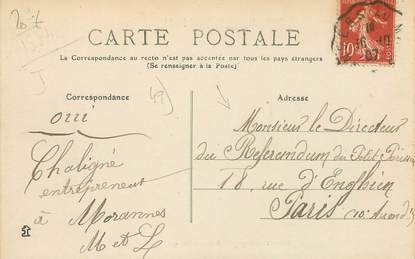 20 f
CARTE POSTALE
La Correspondance au recto n'est pas acceptée par tous les pays étrangers
(Se renseigner à la Poste)
Correspondance
49)
Adresse
oui
Chaligné
entrepreneur
à Morannes
M et L
Monsieur le Directeur
du Referendum du Petit Parisien
18, rue d'Enghien
Paris (10e Arrond.t)
10
16 10
07